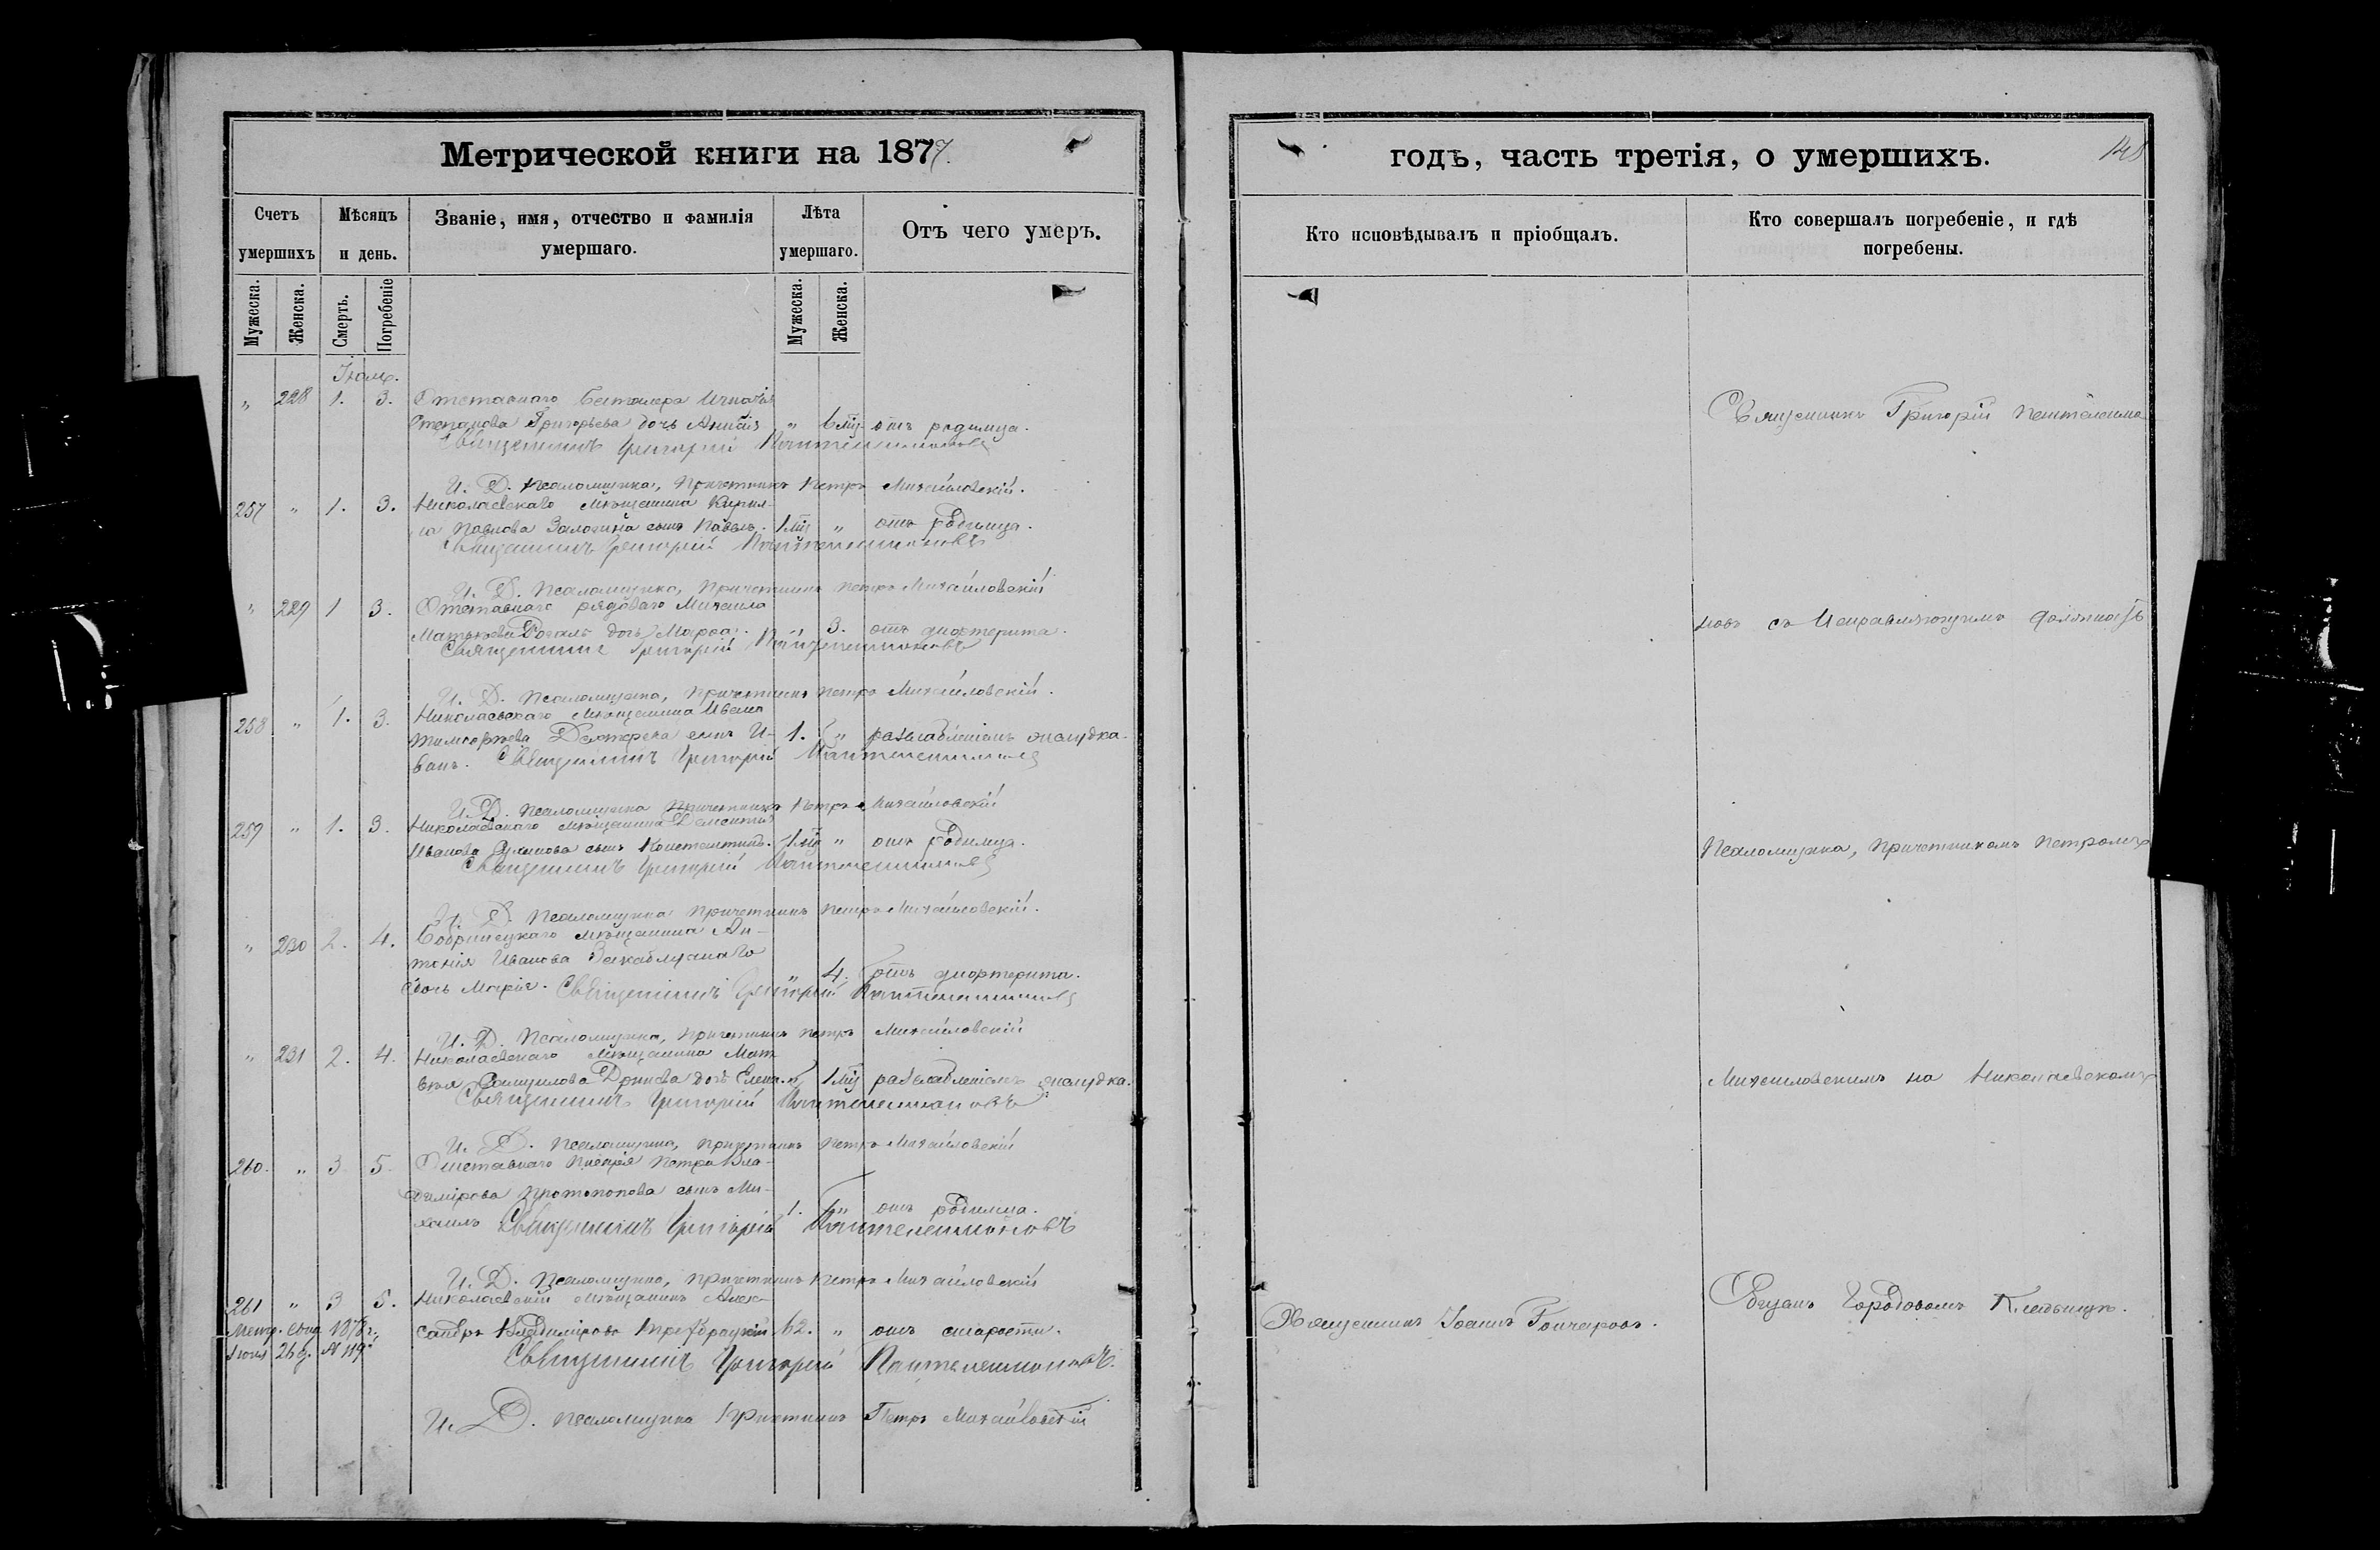 Метрической книги на 1877.
Счетъ умершихъ
Мѣсяцъ и день.
Званіе, имя, отчество и фамилія умершаго.
Лѣта умершаго.
Отъ чего умеръ.
Мужеска. Женска. Смерть. Погребеніе Мужеска. Женска.
" 228 1. 3. Отставнаго
Степанова Григорьева дочь " отъ родимца.
Священникъ Григорій Пантелеимоновъ
И. Д. Псаломщика, Причетникъ Петръ Михайловскій.
257 " 1. 3. Николаевскаго мѣщанина Кирил-
ла Павлова сынъ Павелъ. " отъ родимца.
Священникъ Григорій Пантелеимоновъ
И. Д. Псаломщика, Причетникъ Петръ Михайловскій
" 229 1 3. Отставнаго рядоваго Михаила
дочь " 3. отъ дифтерита.
Священникъ Григорій Пантелеимоновъ
И. Д. Псаломщика, Причетникъ Петръ Михайловскій.
258 " 1. 3. Николаевскаго мѣщанина Ивана
сынъ И- 1. " желудка.
ванъ. Священникъ Григорій Пантелеимоновъ
И. Д. Псаломщика Причетникъ Петръ Михайловскій
259 " 1. 3. Николаевскаго мѣщанина
Иванова сынъ Константинъ. " отъ родимца.
Священникъ Григорій Пантелеимоновъ
И. Д. Псаломщика Причетникъ Петръ Михайловскій.
" 230 2. 4. Бобринецкаго мѣщанина Ан-
тонія Иванова
дочь Марія. " 4. отъ дифтерита.
Священникъ Григорій Пантелеимоновъ
И. Д. Псаломщика, Причетникъ Петръ Михайловскій
" 231 2. 4. Николаевскаго мѣщанина Мат-
вѣя Самуилова дочь Елена. " желудка.
Священникъ Григорій Пантелеимоновъ
И. Д. Псаломщика, Причетникъ Петръ Михайловскій
260. " 3 5. Отставнаго писаря Петра Вла-
димірова Протопопова сынъ Ми-
хаилъ 1. " отъ родимца.
Священникъ Григорій Пантелеимоновъ
И. Д. Псаломщика, Причетникъ Петръ Михайловскій
261 " 3 5. Николаевскій мѣщанинъ Алек-
сандръ Владиміровъ 62. " отъ старости.
Метр. свид. 1878 г.
26 д. № 119.
Священникъ Григорій Пантелеимоновъ.
И. Д. Псаломщика Причетникъ Петръ Михайловскій
годъ, часть третія, о умершихъ.
148
Кто исповѣдывалъ и пріобщалъ.
Кто совершалъ погребеніе, и гдѣ погребены.
Священникъ Григорій Пантелеимо
новъ съ Исправляющимъ должность
Псаломщика, Причетникомъ Петромъ
Михайловскимъ на Николаевскомъ
Городовомъ Кладбищѣ.
Священникъ Іоаннъ Гончаровъ.